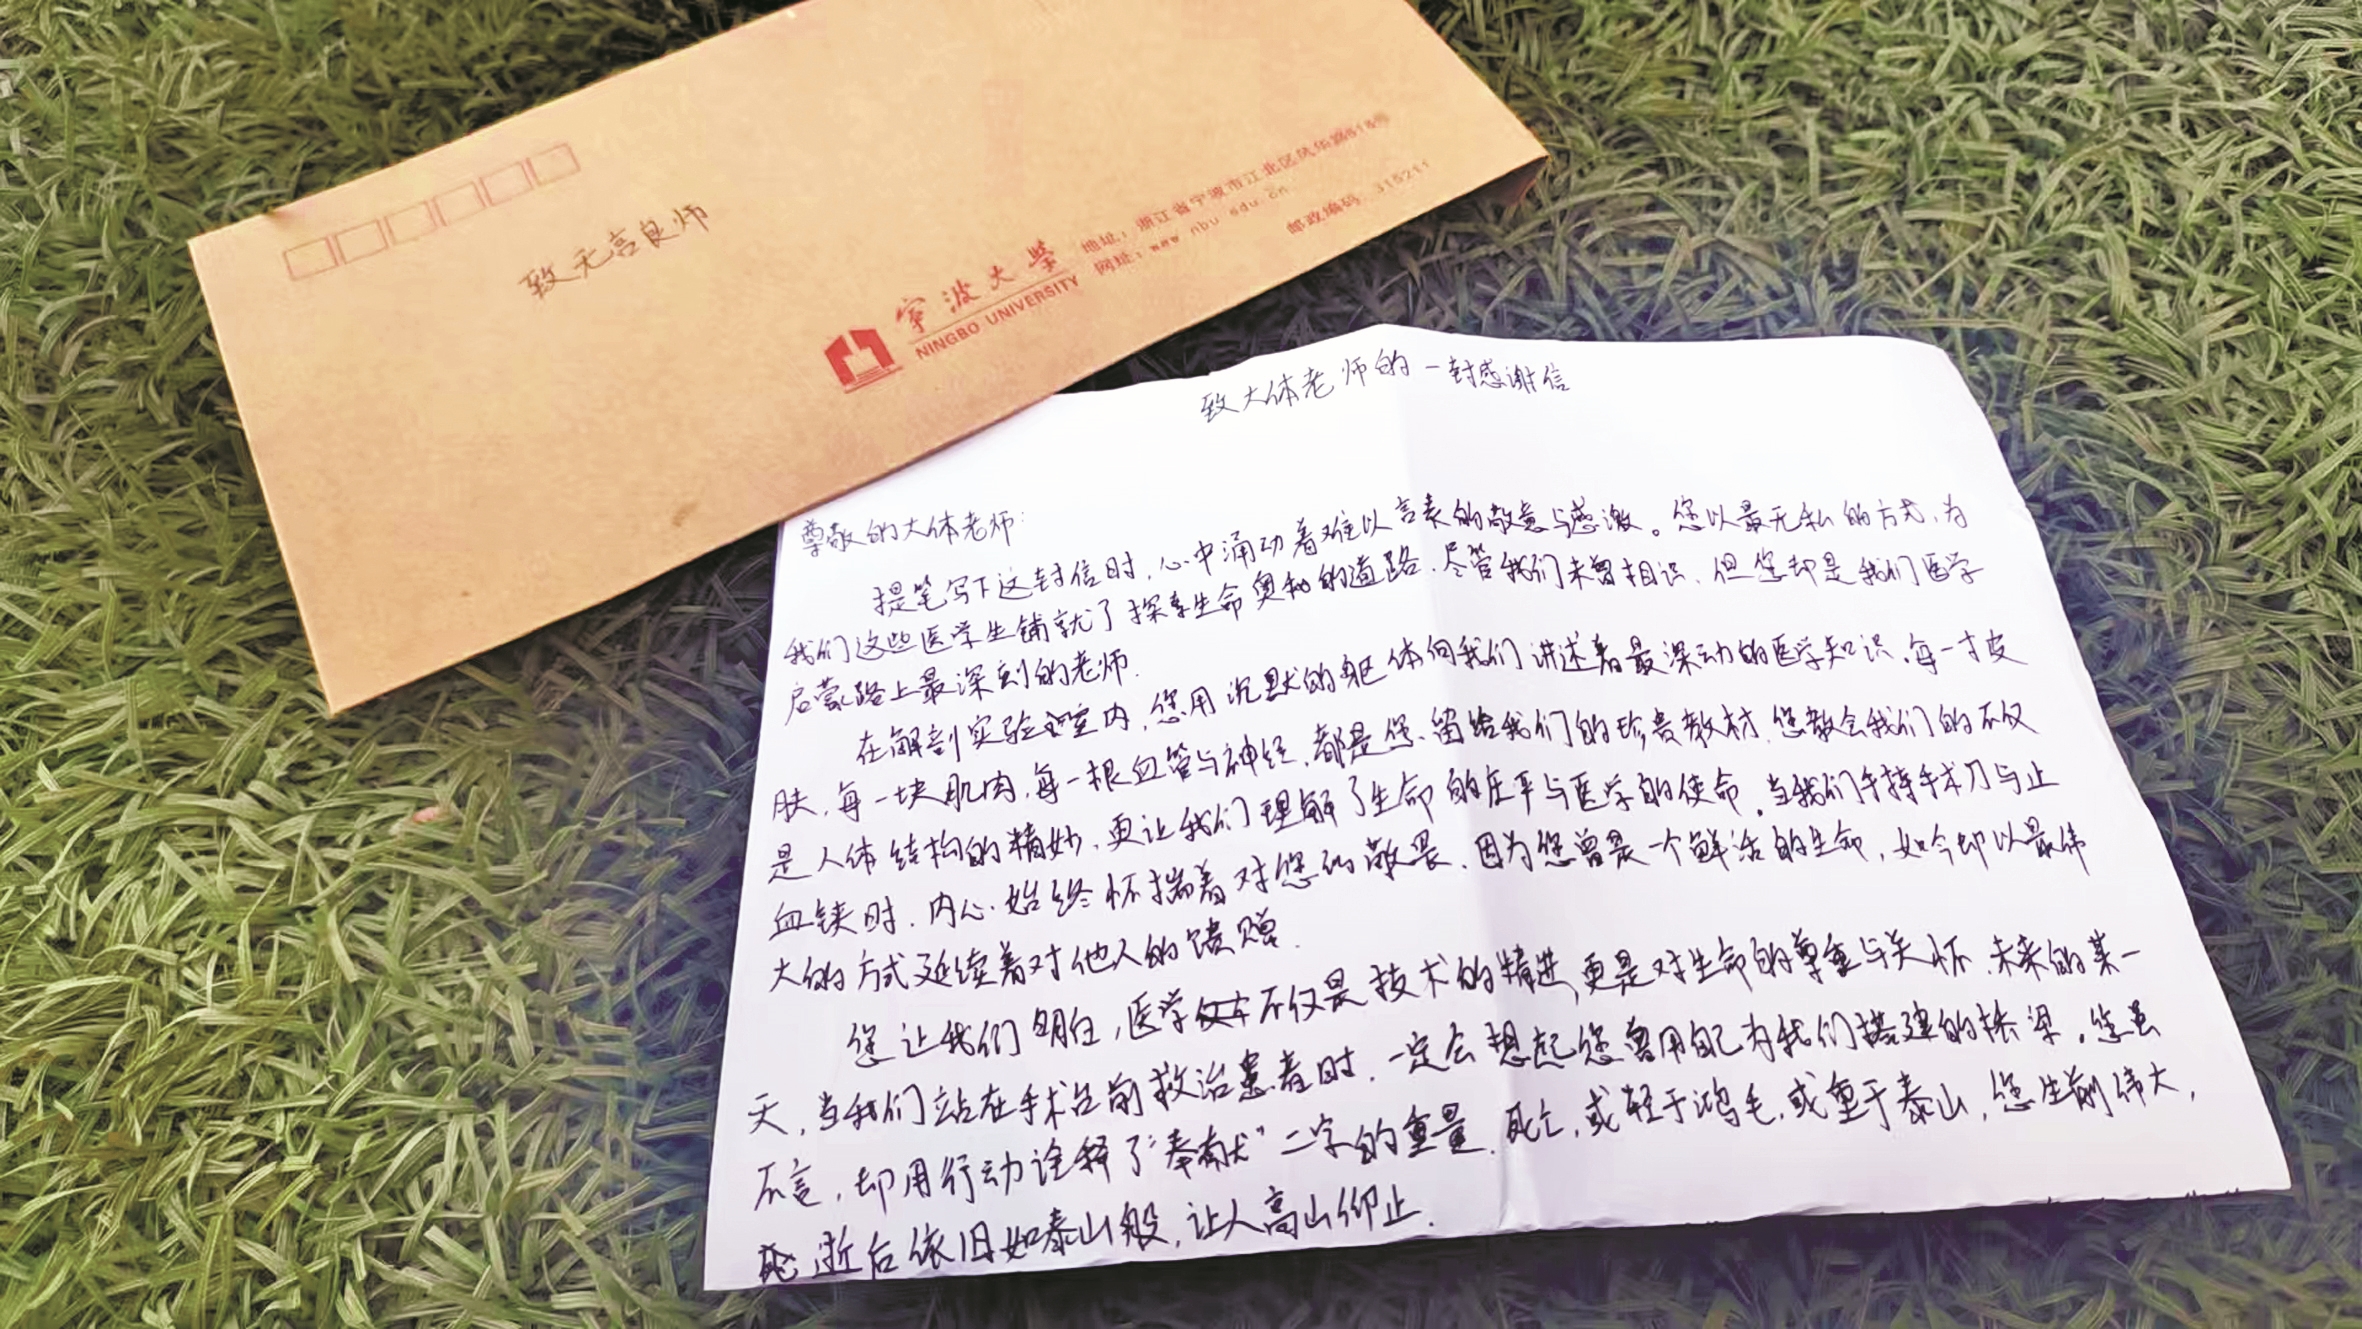 致无言良师
宁波大学
NINGBO UNIVERSITY
地址：浙江省宁波市江北区风华路818号
网址：www.nbu.edu.cn
邮政编码 315211
致大体老师的一封感谢信
尊敬的大体老师：
提笔写下这封信时，心中涌动着难以言表的敬意与感激。您以最无私的方式，为
我们这些医学生铺就了探索生命奥秘的道路．尽管我们未曾相识．但您却是我们医学
启蒙路上最深刻的老师．
在解剖实验室内，您用沉默的躯体向我们讲述着最深动的医学知识．每一寸皮
肤，每一块肌肉，每一根血管与神经，都是您留给我们的珍贵教材．您教会我们的不仅
是人体结构的精妙．更让我们理解了生命的庄严与医学的使命．当我们手持手术刀与止
血铗时．内心始终怀揣着对您的敬畏．因为您曾是一个鲜活的生命，如今却以最伟
大的方式延续着对他人的馈赠．
您让我们明白，医学不仅是技术的精进，更是对生命的尊重与关怀．未来的某一
天，当我们站在手术台前救治患者时．一定会想起您曾用自己为我们搭建的桥梁．您虽
不言，却用行动诠释了“奉献”二字的重量．死亡，或轻于鸿毛，或重于泰山，您生前伟大，
逝后依旧如泰山般，让人高山仰止．